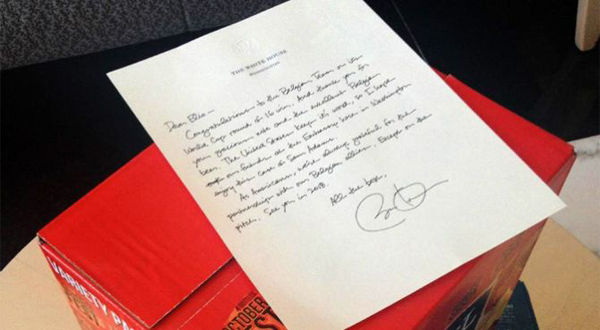 THE WHITE HOUSE
WASHINGTON
Dear Elio—
Congratulations to the Belgian Team on its
World Cup round of 16 win. And thank you for
your gracious note and the excellent Belgian
beer. The United States keeps its word, so I hope
our friends at the Embassy here in Washington
enjoy this case of Sam Adams.
As Americans, we're always grateful for the
partnership with our Belgian allies. Except on the
pitch. See you in 2018.
All the best,
VARIETY PA
OCTOBER
ST